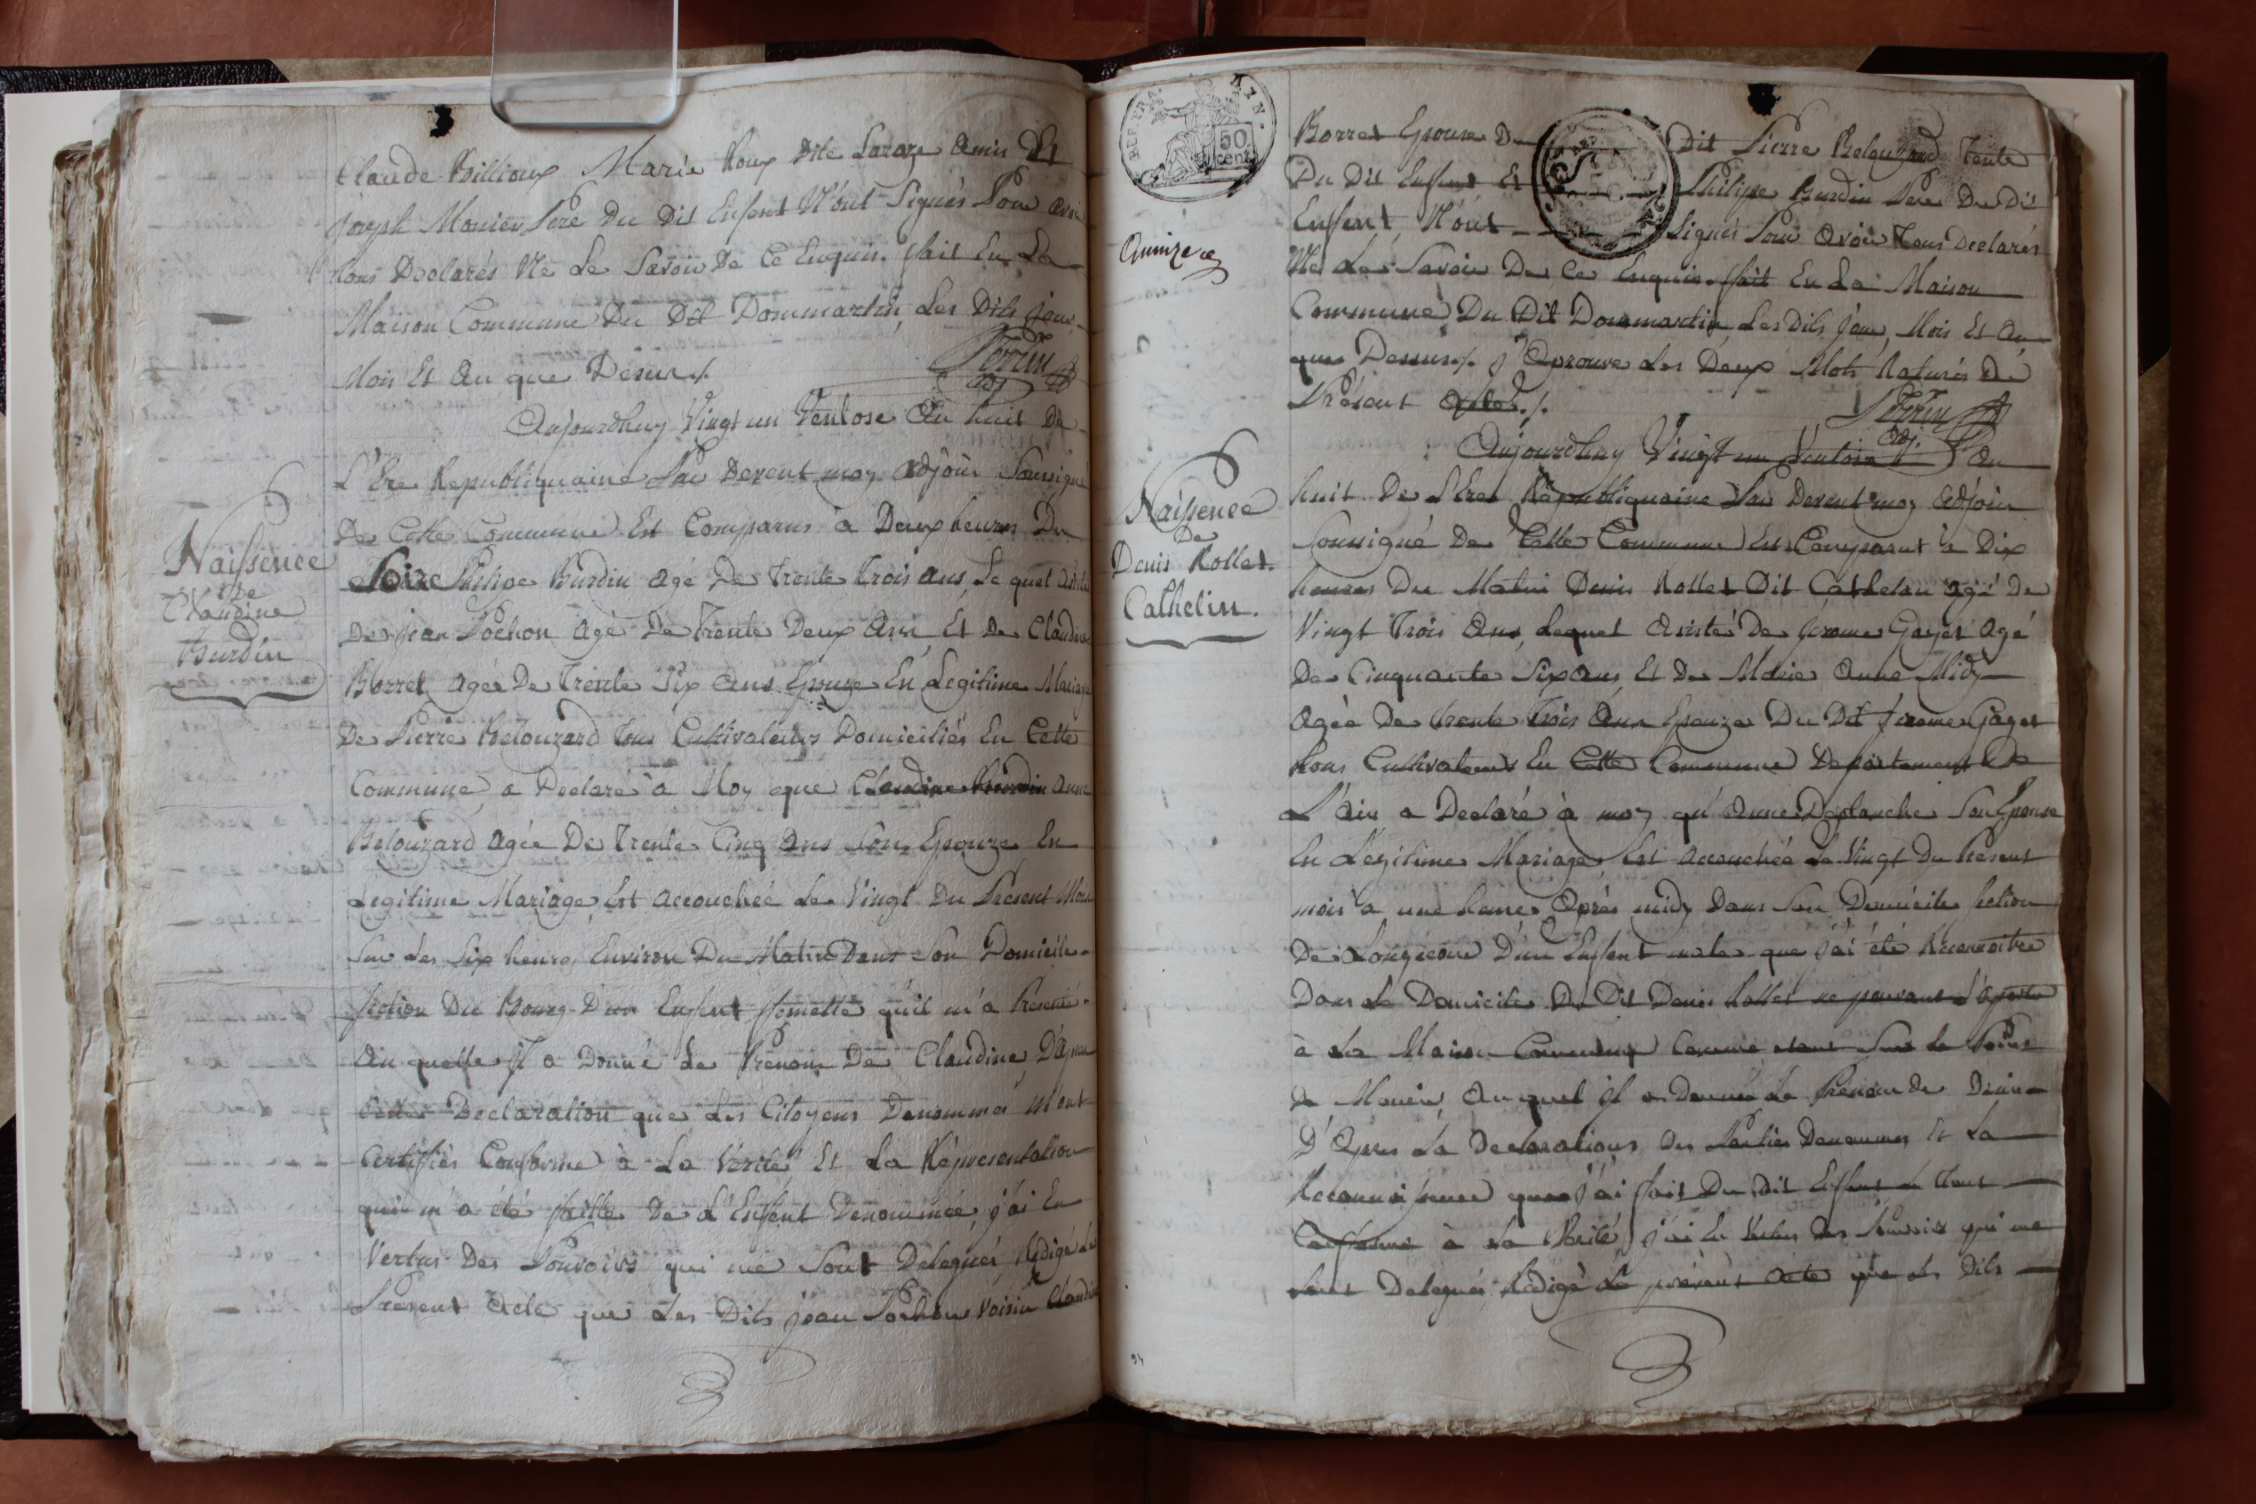 Claude Billioux Marie Roux dite Lavaze amis Et
joseph Monier Pere Du Dit Enfent N'ont Signés Pour avoir
tous Declarés Ne Le Savoir De Ce Enquis. fait En La
Maison Commune Du Dit Dommartin Les Dits jour
Mois Et An que Desus /.
Perrin
adj
Aujourdhuy Vingt un Ventose An huit De
L'Ere Republiquaine Par Devent moy adjoin Soussigné
De Cette Commune Est Comparus à Deux heures Du
Soire Philipe Burdin agé De Trente Trois ans, Le quel assisté
De jean Pochon agé De Trente Deux Ans Et De Claudine
Borret agée De Trente Six ans Epouze En Legitime Mariage
De Pierre Belouzard Tous Cultivateurs Domiciliés En Cette
Commune, a Declaré à Moy que Claudine Burdin anne
Belouzard agée De Trente Cinq ans Son Epouze En
Legitime Mariage, Est accouchée Le Vingt Du Présent Mois
Sur Les Six heure Environ Du Matin Dans Son Domicile
Section Du Bourg D'un Enfent femelle qu'il m'a Presenté
Au quelle Il a Donné Le Prenom De Claudine, D'apres
Cette Declaration que Les Citoyens Denommés M'ont
Certifiés Conforme à La Verité Et La Représentation
qui m'a été faitte De L'Enfent Denommée, j'ai En
Vertus Des Pouvoirs qui me Sont Delegués Rédigé Le
Present Acte que Les Dits jean Pochon Voisin Claudine
Naissence
De
Claudine
Burdin
REP. FRA.
50
cent
Quinze
Borret Epouse Du Dit Pierre Belouzard Tente
Du Dit Enfent Et Philipe Burdin Pere Du Dit
Enfent N'ont Signés Pour Avoir Tous Declarés
Ne Le Savoir De Ce Enquis. fait En La Maison
Commune Du Dit Dommartin Les Dits jour, Mois Et An
que Dessus /. j'Aprouve Les Deux Mots Raturés De
Présent Acte /.
Perrin
adj.
Aujourdhuy Vingt un Ventose L'An
huit De L'Ere Républiquaine Par Devent moy Adjoin
Soussigné De Cette Commune Est Comparut à Dix
heures Du Matin Denis Rollet Dit Cathelin agé De
Vingt Trois Ans, Lequel Assisté De jerome Gayet Agé
De Cinquante Six ans Et De Marie Anne Midy
Agée De trente Trois Ans Epouze Du Dit jerome Gayet
tous Cultivateurs En Cette Commune Departement De
L'ain a Declaré à moy qu'Anne Deplanche Son Epouse
En Legitime Mariage Est Accouchée Le Vingt Du Présent
mois à une heure Après midy Dans Son Domicile Section
De D'un Enfent male que j'ai été Reconnoitre
Dans Le Domicile Du Dit Denis Rollet ne pouvant
à La Maison Commune Comme etant Sur Le Point
De Mourir, Auquel Il a Donné Le Prenom De Denis
D'Apres La Declarations Des Parties Denommes Et La
Reconnoissence que j'ai fait Du Dit Enfent Le Tout
Conforme à La Verité j'ai En Vertus Des Pouvoirs qui me
Sont Delegués Rédigé Le présent Acte que Les Dits
Naissence
De
Denis Rollet
Cathelin.